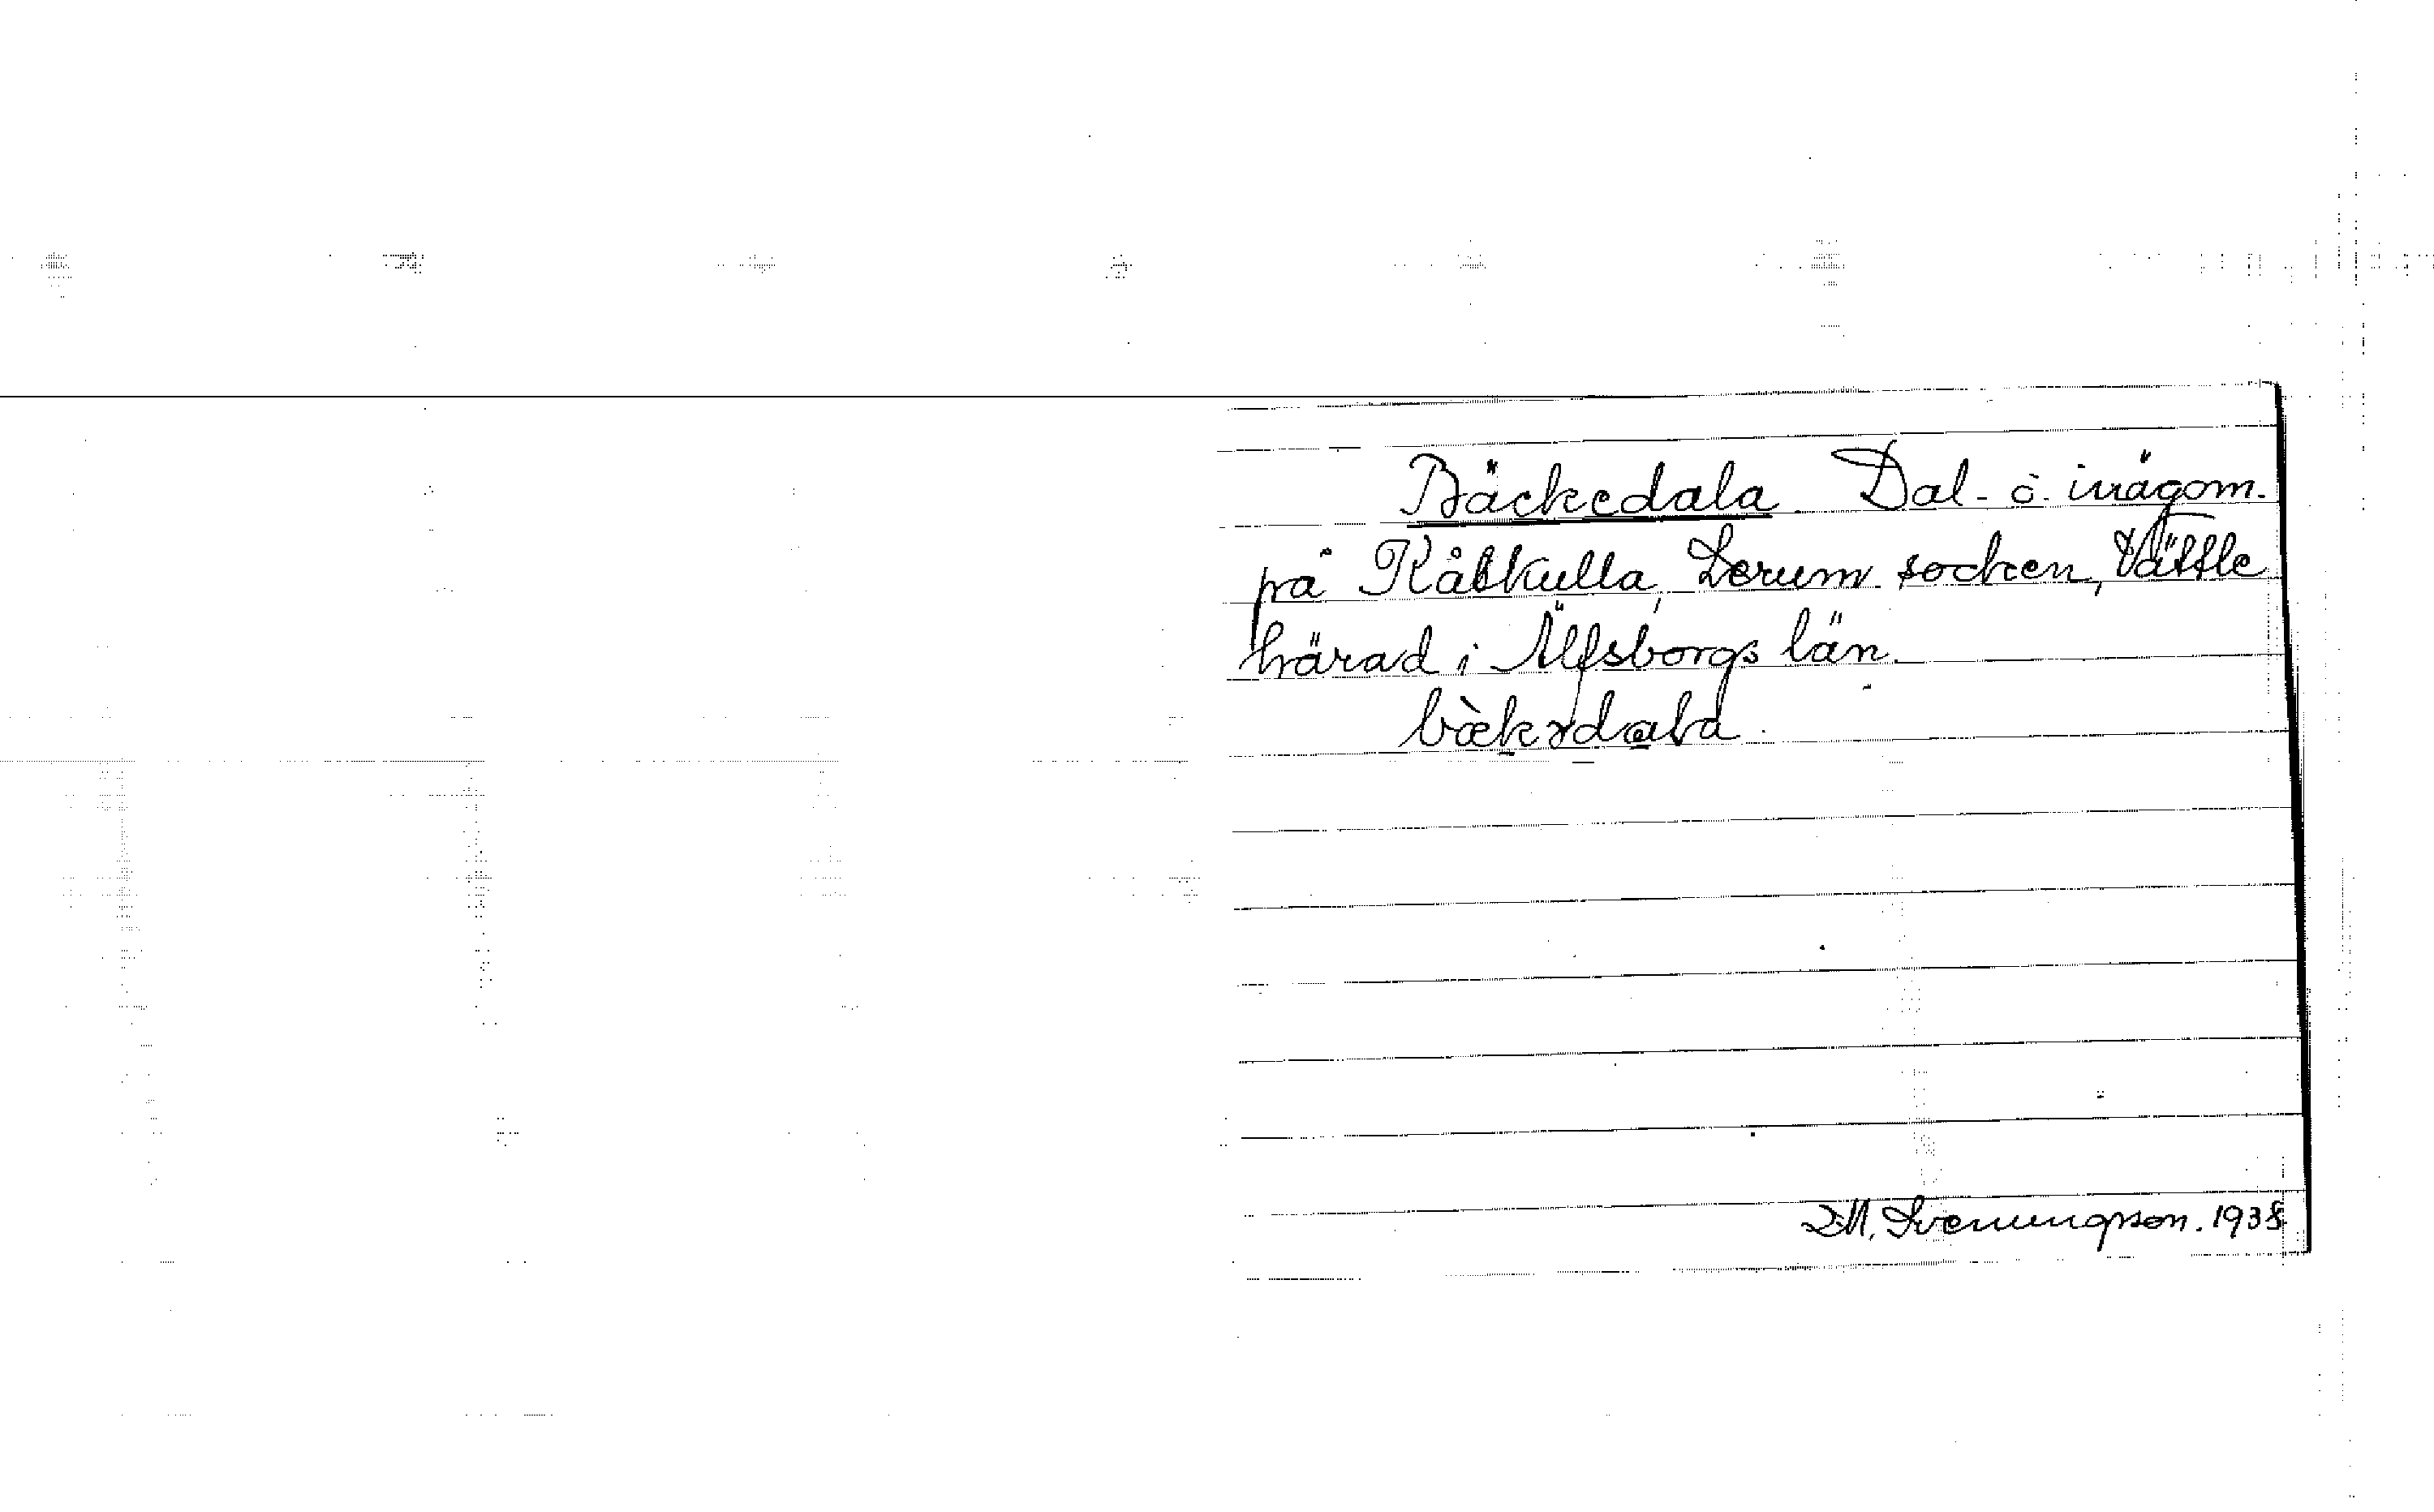 Bäckedala Dal- o. inägom.
på Kåbkulla, Lerum socken, Vättle
härad i Älfsborgs län.
Svenungsson. 1938